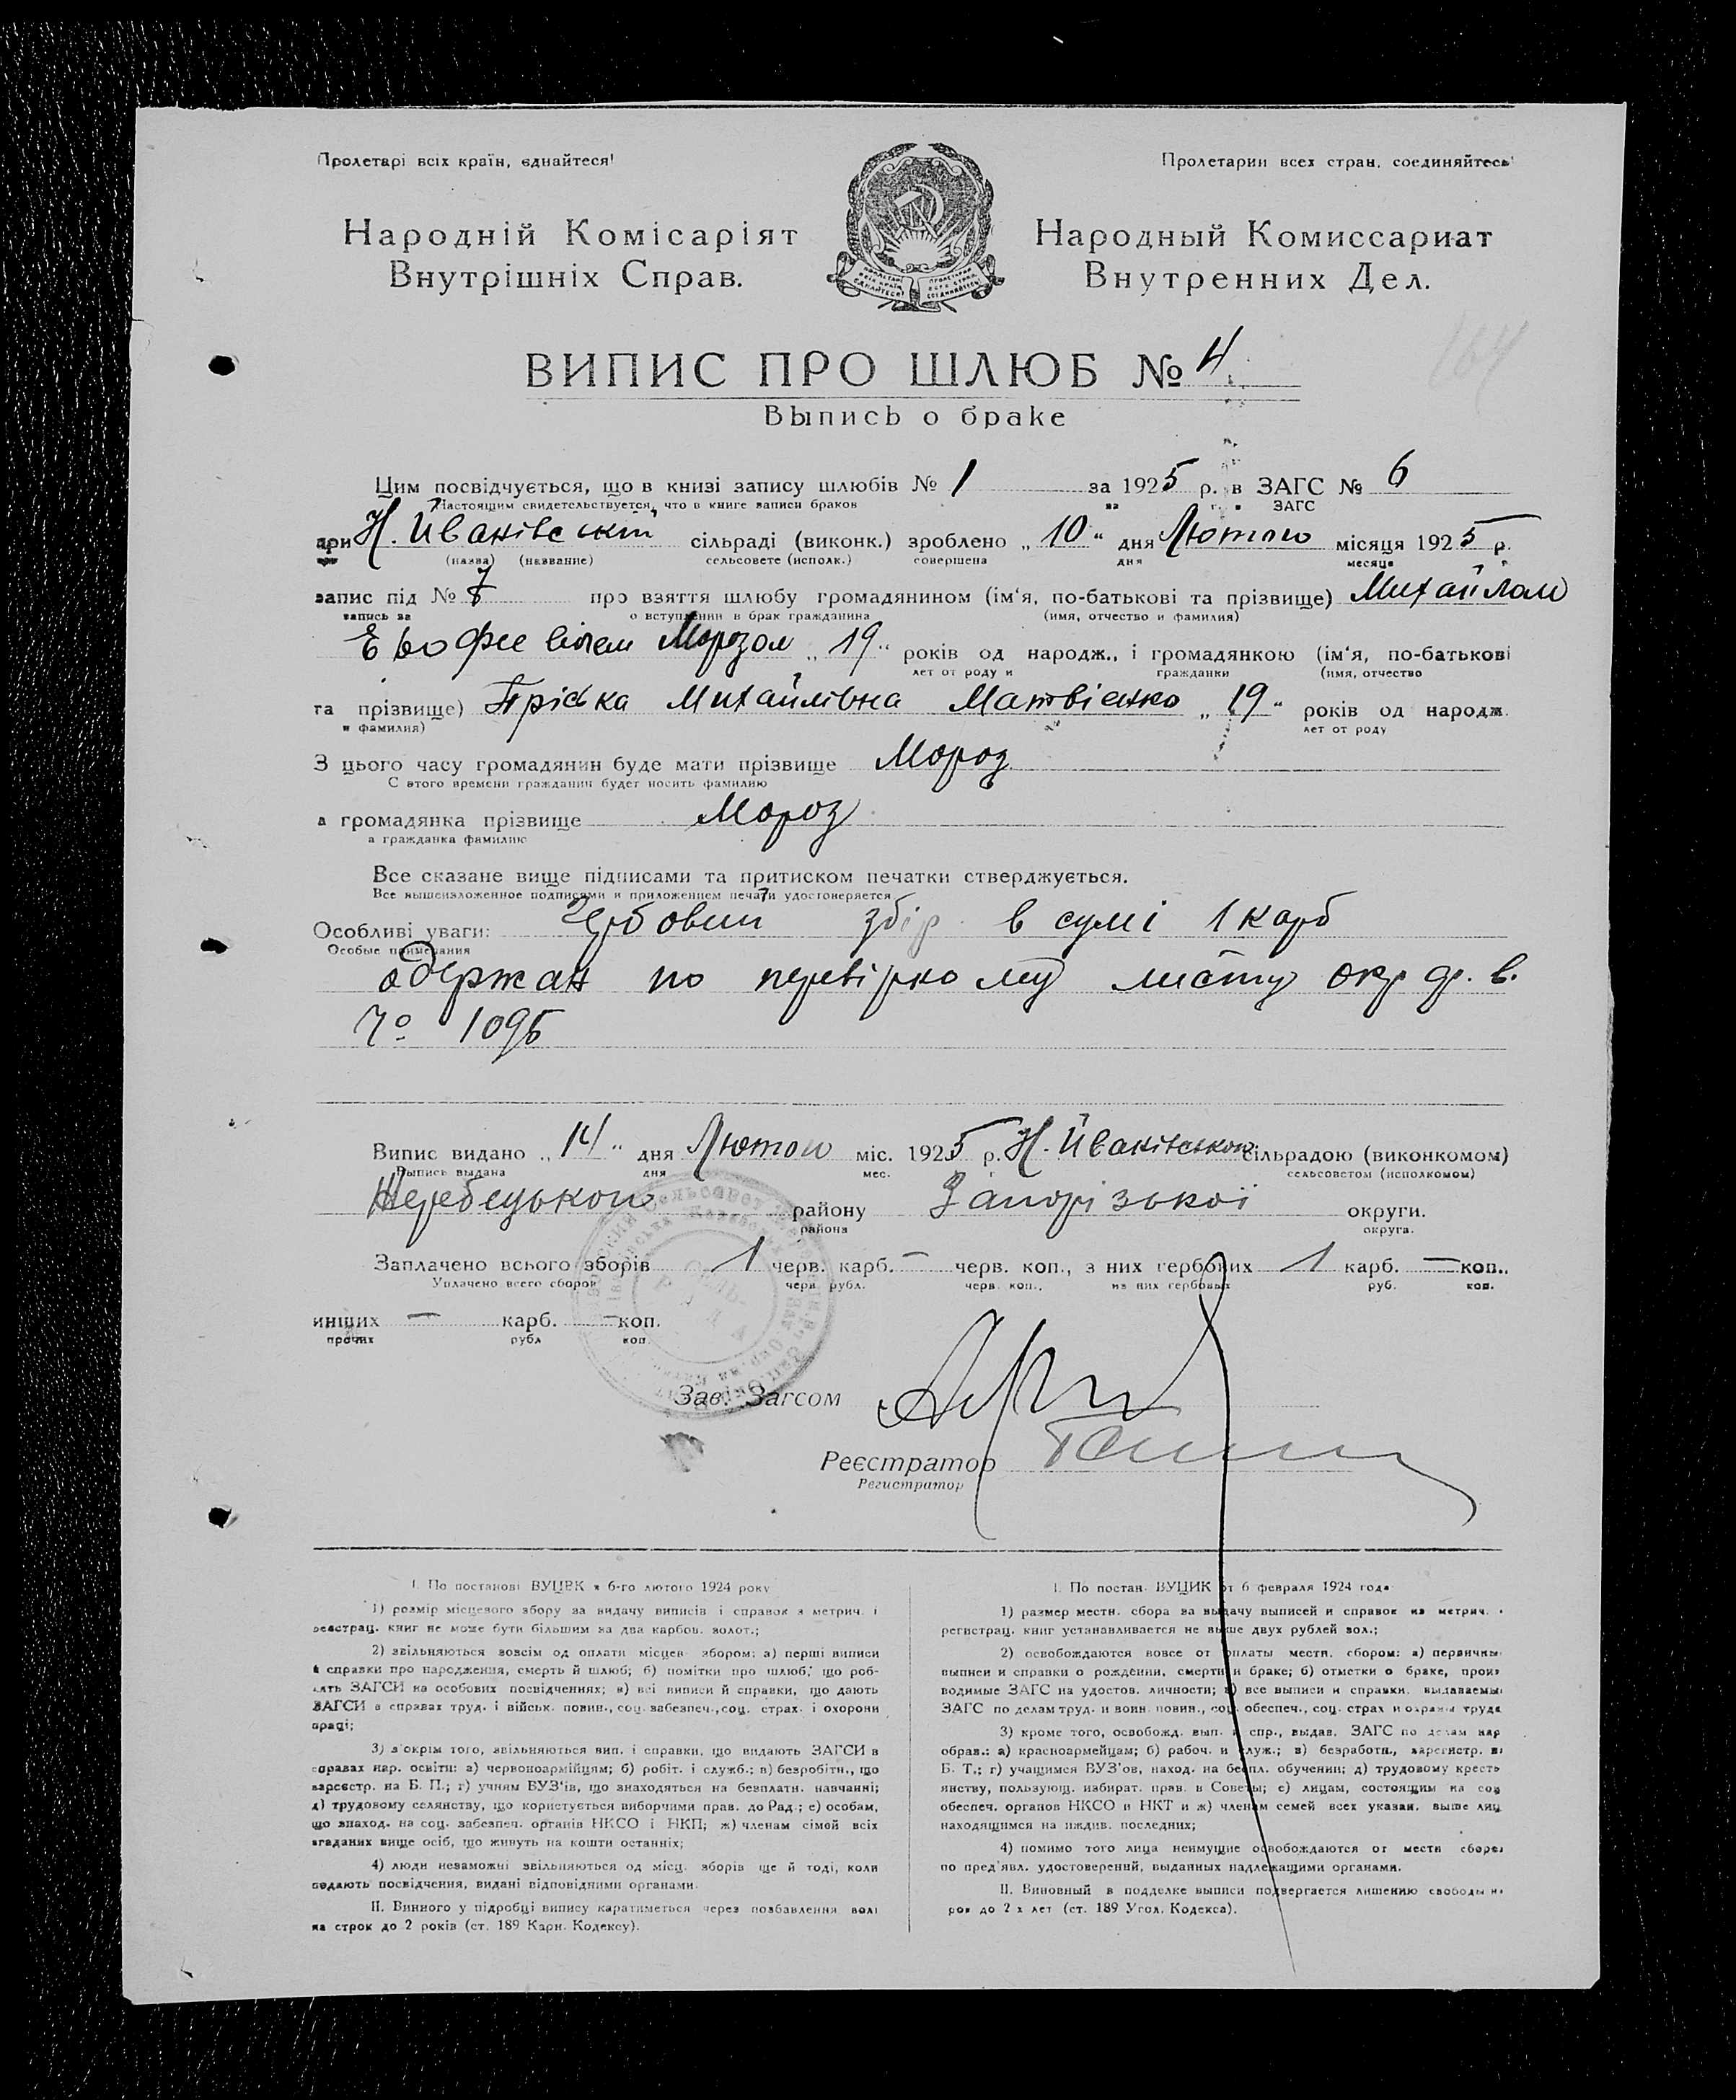 Пролетарі всіх країн, єднайтеся!
Пролетарии всех стран, соединяйтесь!
Народній Комісаріят
Внутрішніх Справ.
Народный Комиссариат
Внутренних Дел.
164
ВИПИС ПРО ШЛЮБ № 4
Выпись о браке
Цим посвідчується, що в книзі запису шлюбів № 1 за 1925 р. в ЗАГС № 6
Настоящим свидетельствуется, что в книге записи браков за г. в ЗАГС
при Н. Иванівській сільраді (виконк.) зроблено „10“ дня Лютого місяця 1925 р.
при (назва) (название) сельсовете (исполк.) совершена дня месяца г.
запис під № 7 про взяття шлюбу громадянином (ім‘я, по-батькові та прізвище) Михайлом
запись за о вступлении в брак гражданина (имя, отчество и фамилия)
Морозом „19“ років од народж., і громадянкою (ім‘я, по-батькові
лет от роду и гражданки (имя, отчество
та прізвище) Пріська Михайлівна Матвієнко „19“ років од народж.
и фамилия) лет от роду
З цього часу громадянин буде мати прізвище Мороз
С этого времени гражданин будет носить фамилию
а громадянка прізвище Мороз
а гражданка фамилию
Все сказане вище підписами та притиском печатки стверджується.
Все вышеизложенное подписями и приложением печати удостоверяется
Особливі уваги: Гербовий збір в сумі 1 карб
Особые примечания
одержан по перевіркому листу окр ф. в.
№ 1095
Випис видано „14“ дня Лютого міс. 1925 р. Н. Иванівською сільрадою (виконкомом)
Выпись выдана дня мес. г. сельсоветом (исполкомом)
Жеребецького району Запорізької округи.
района округа.
Заплачено всього зборів 1 черв. карб. — черв. коп., з них гербових 1 карб. — коп.,
Уплачено всего сборов черв. рубл. черв. коп., из них гербовых руб. коп.
инших — карб. — коп.
прочих рубл коп.
Зав. Загсом
Реєстратор
Регистратор
I. По постанові ВУЦВК з 6-го лютого 1924 року
1) розмір місцевого збору за видачу виписів і справок з метрич. і
реєстрац. книг не може бути більшим за два карбов. золот.;
2) звільняються зовсім од оплати місцев. збором: а) перші виписи
й справки про народження, смерть й шлюб; б) помітки про шлюб, що роб-
лять ЗАГСИ на особових посвідченнях; в) всі виписи й справки, що дають
ЗАГСИ в справах труд. і військ. повин., соц. забезпеч., соц. страх. і охорони
праці;
3) з‘окрім того, звільняються вип. і справки, що видають ЗАГСИ в
справах нар. освіти: а) червоноармійцям; б) робіт. і служб.; в) безробітн., що
зареєстр. на Б. П.; г) учням ВУЗ‘ів, що знаходяться на безплатн. навчанні;
д) трудовому селянству, що користується виборчими прав. до Рад.; е) особам,
що знаход. на соц. забезпеч. органів НКСО і НКП; ж) членам сімей всіх
згаданих вище осіб, що живуть на кошти останніх;
4) люди незаможні звільняються од місц. зборів ще й тоді, коли
подають посвідчення, видані відповідними органами.
II. Винного у підробці випису каратиметься через позбавлення волі
на строк до 2 років (ст. 189 Карн. Кодексу).
I. По постан. ВУЦИК от 6 февраля 1924 года
1) размер местн. сбора за выдачу выписей и справок из метрич. и
регистрац. книг устанавливается не выше двух рублей зол.;
2) освобождаются вовсе от оплаты местн. сбором: а) первичные
выписи и справки о рождении, смерти и браке; б) отметки о браке, произ
водимые ЗАГС на удостов. личности; в) все выписи и справки, выдаваемые
ЗАГС по делам труд. и воин. повин., соц. обеспеч., соц. страх и охраны труда
3) кроме того, освобожд. вып. и спр., выдав. ЗАГС по делам нар
образ.: а) красноармейцам; б) рабоч. и служ.; в) безработн., зарегистр. на
Б. Т.; г) учащимся ВУЗ‘ов, наход. на беспл. обучении; д) трудовому кресть
янству, пользующ. избират. прав. в Советы; е) лицам, состоящим на соц
обеспеч. органов НКСО и НКТ и ж) членам семей всех указан. выше лиц
находящимся на иждив. последних;
4) помимо того лица неимущие освобождаются от местн сборов
по пред‘явл. удостоверений, выданных надлежащими органами.
II. Виновный в подделке выписи подвергается лишению свободы на
рок до 2 х лет (ст. 189 Угол. Кодекса).